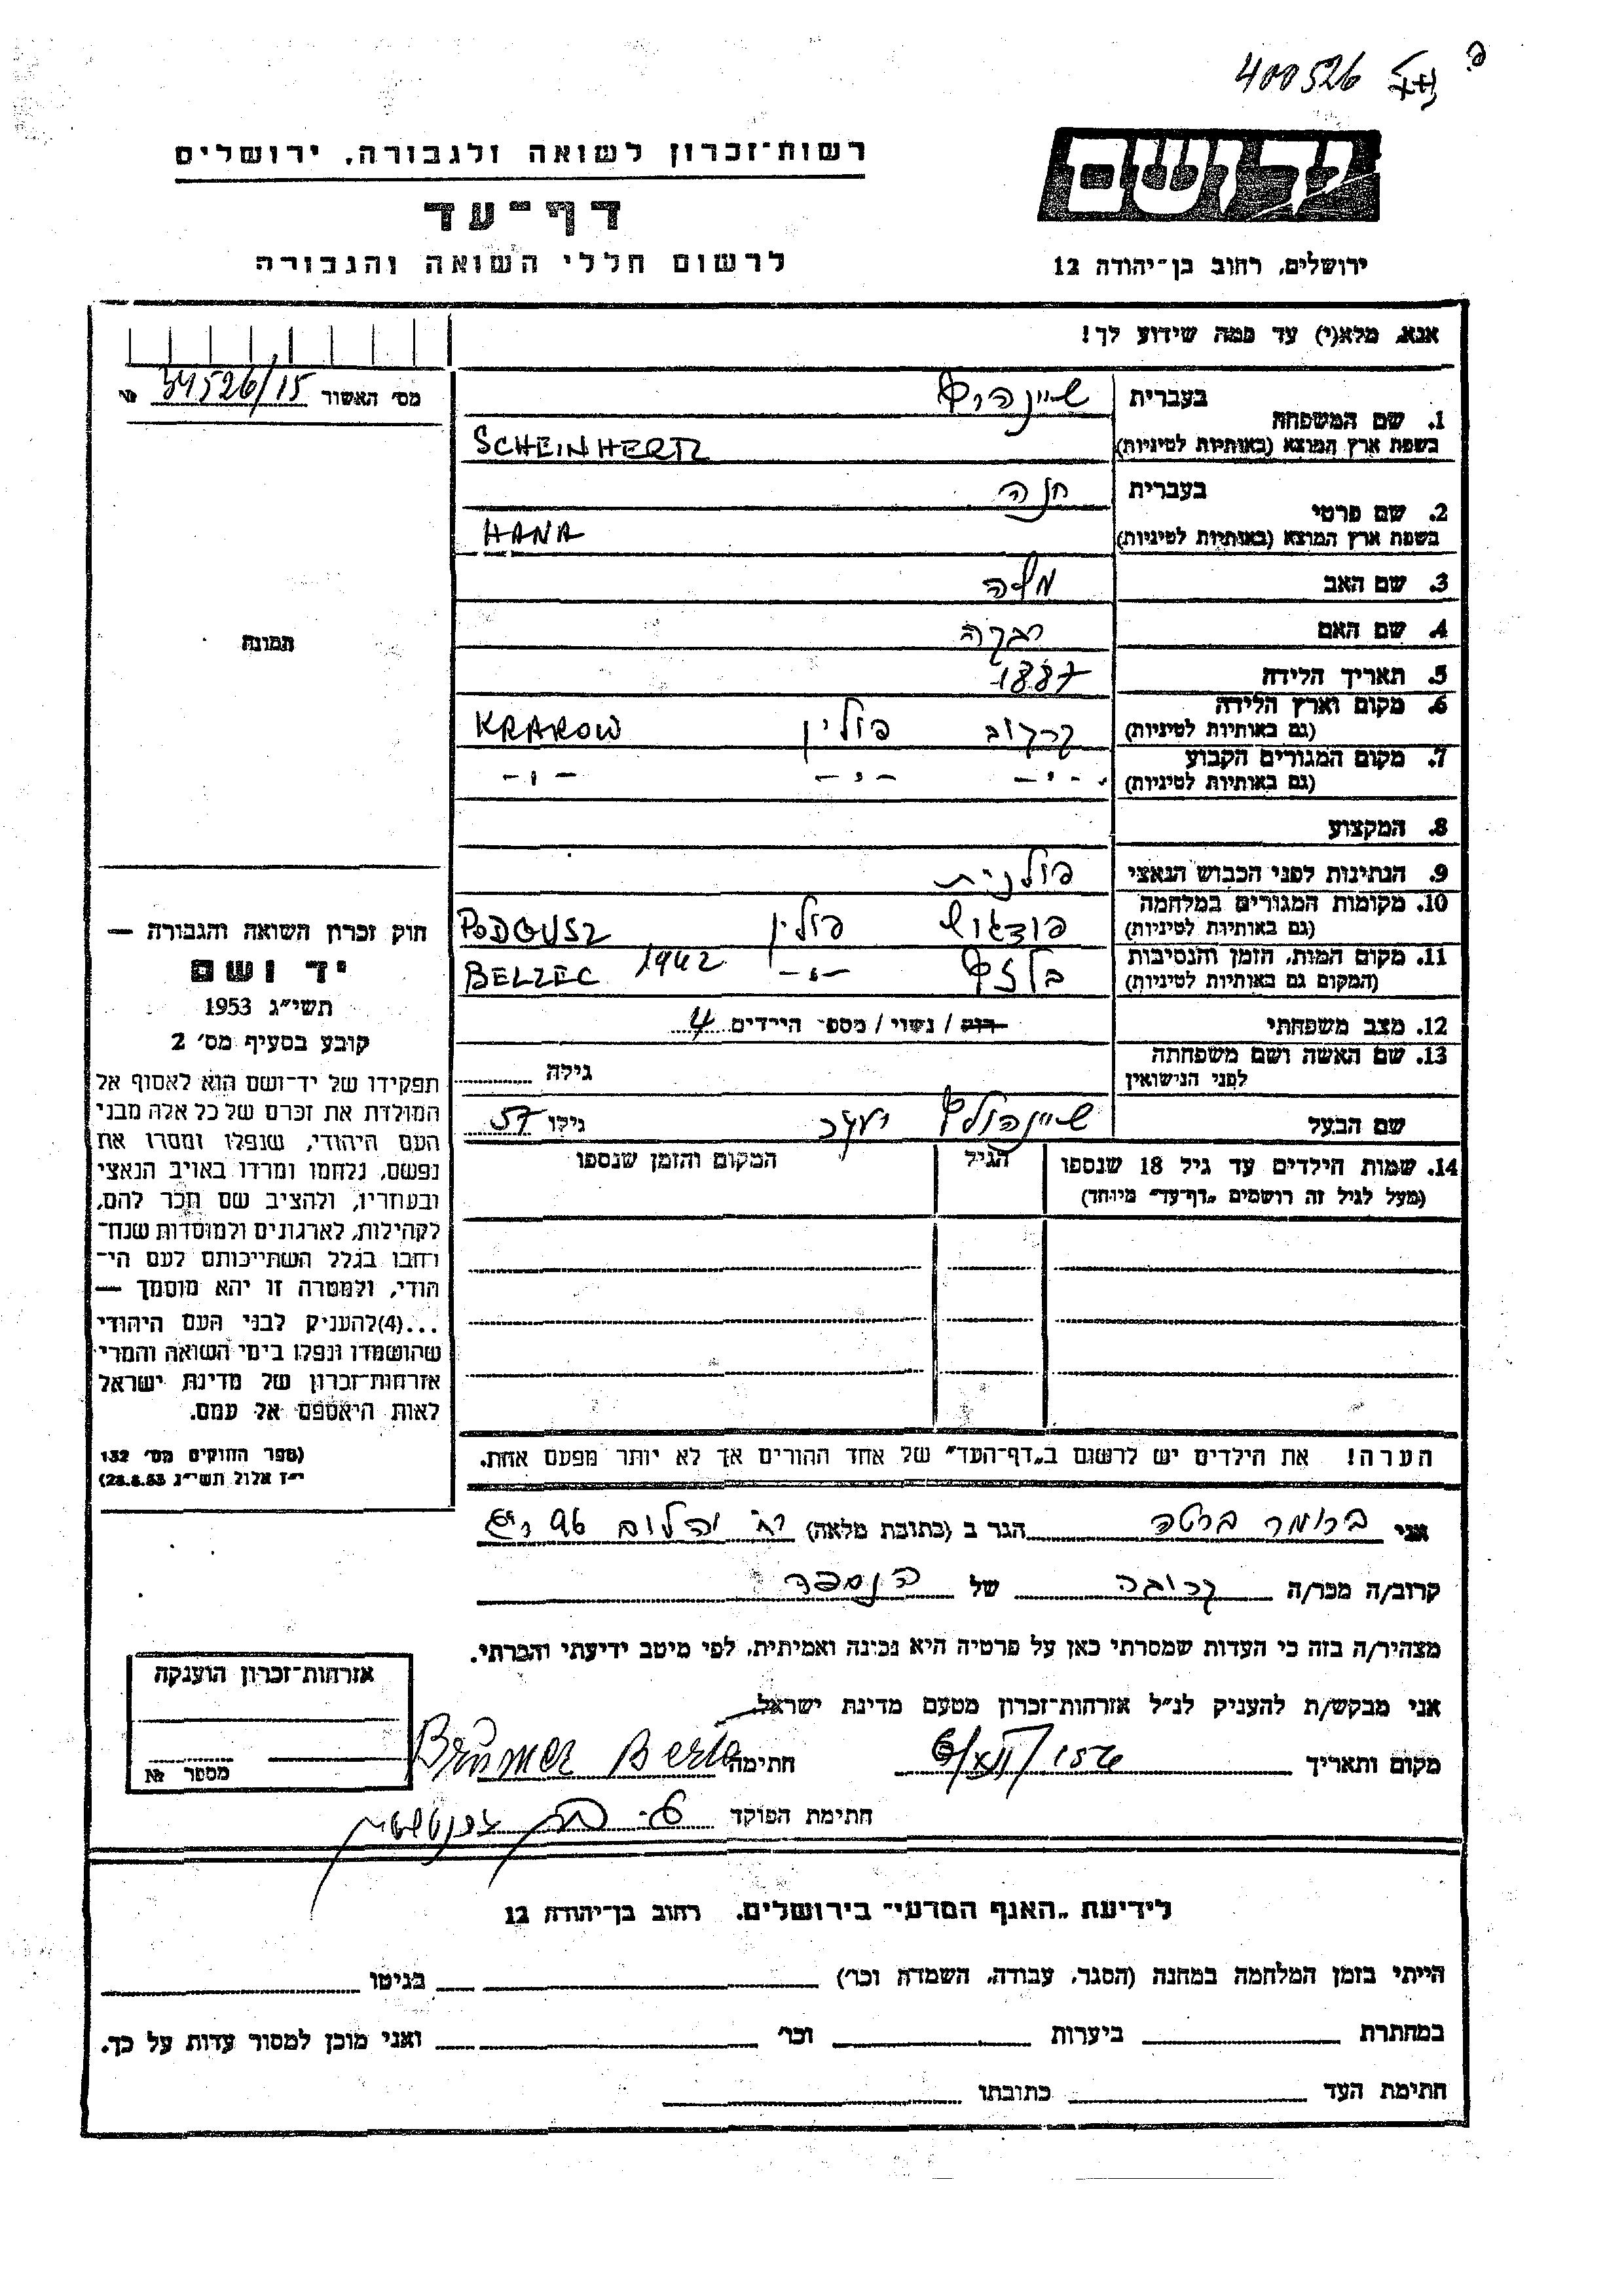 400526
רשות-זכרון לשואה ולגבורה, ירושלים
דף-עד
לרשום חללי השואה והגבורה
ירושלים, רחוב בן-יהודה 12
אנא, מלא(י) עד כמה שידוע לך!
מס׳ האשור 34526/15 №
1. שם המשפחה
בעברית
בשפת ארץ המוצא (באותיות לטיניות)
SCHEINHERTZ
2. שם פרטי
בעברית חנה
בשפת ארץ המוצא (באותיות לטיניות)
HANA
3. שם האב משה
4. שם האם רבקה
5. תאריך הלידה 1887
6. מקום וארץ הלידה
(גם באותיות לטיניות)
קרקוב פולין KRAKOW
7. מקום המגורים הקבוע
(גם באותיות לטיניות)
-"- -"- -"-
8. המקצוע
9. הנתינות לפני הכבוש הנאצי פולנית
10. מקומות המגורים במלחמה
(גם באותיות לטיניות)
פולין PODGUSZ
11. מקום המות, הזמן והנסיבות
(המקום גם באותיות לטיניות)
-"- 1942 BELZEC
12. מצב משפחתי
רוק / נשוי / מספר הילדים 4
13. שם האשה ושם משפחתה
לפני הנישואין
גילה
שם הבעל
יעקב גילו 57
14. שמות הילדים עד גיל 18 שנספו
(מעל לגיל זה רושמים „דף-עד" מיוחד)
הגיל
המקום והזמן שנספו
הערה! את הילדים יש לרשום ב„דף-העד" של אחד ההורים אך לא יותר מפעם אחת.
תמונה
חוק זכרון השואה והגבורה —
יד ושם
תשי״ג 1953
קובע בסעיף מס׳ 2
תפקידו של יד-ושם הוא לאסוף אל
המולדת את זכרם של כל אלה מבני
העם היהודי, שנפלו ומסרו את
נפשם, נלחמו ומרדו באויב הנאצי
ובעוזריו, ולהציב שם וזכר להם,
לקהילות, לארגונים ולמוסדות שנח-
רחבו בגלל השתייכותם לעם הי-
הודי, ולמטרה זו יהא מוסמך —
...(4)להעניק לבני העם היהודי
שהושמדו ונפלו בימי השואה והמרי
אזרחות-זכרון של מדינת ישראל
לאות היאספם אל עמם.
(ספר החוקים מס׳ 132
י״ז אלול תשי״ג 28.8.53)
אני ברומר ברטה הגר ב (כתובת מלאה)
קרוב/ה מכר/ה קרובה של הנספה
מצהיר/ה בזה כי העדות שמסרתי כאן על פרטיה היא נכונה ואמיתית, לפי מיטב ידיעתי והכרתי.
אני מבקש/ת להעניק לנ״ל אזרחות-זכרון מטעם מדינת ישראל.
מקום ותאריך חתימה Brumer Berta
חתימת הפוקד
אזרחות-זכרון הוענקה
מספר №
לידיעת „האגף המדעי" בירושלים, רחוב בן-יהודה 12
הייתי בזמן המלחמה במחנה (הסגר, עבודה, השמדה וכר׳) בגיטו
במחתרת ביערות וכר׳ ואני מוכן למסור עדות על כך.
חתימת העד כתובתו